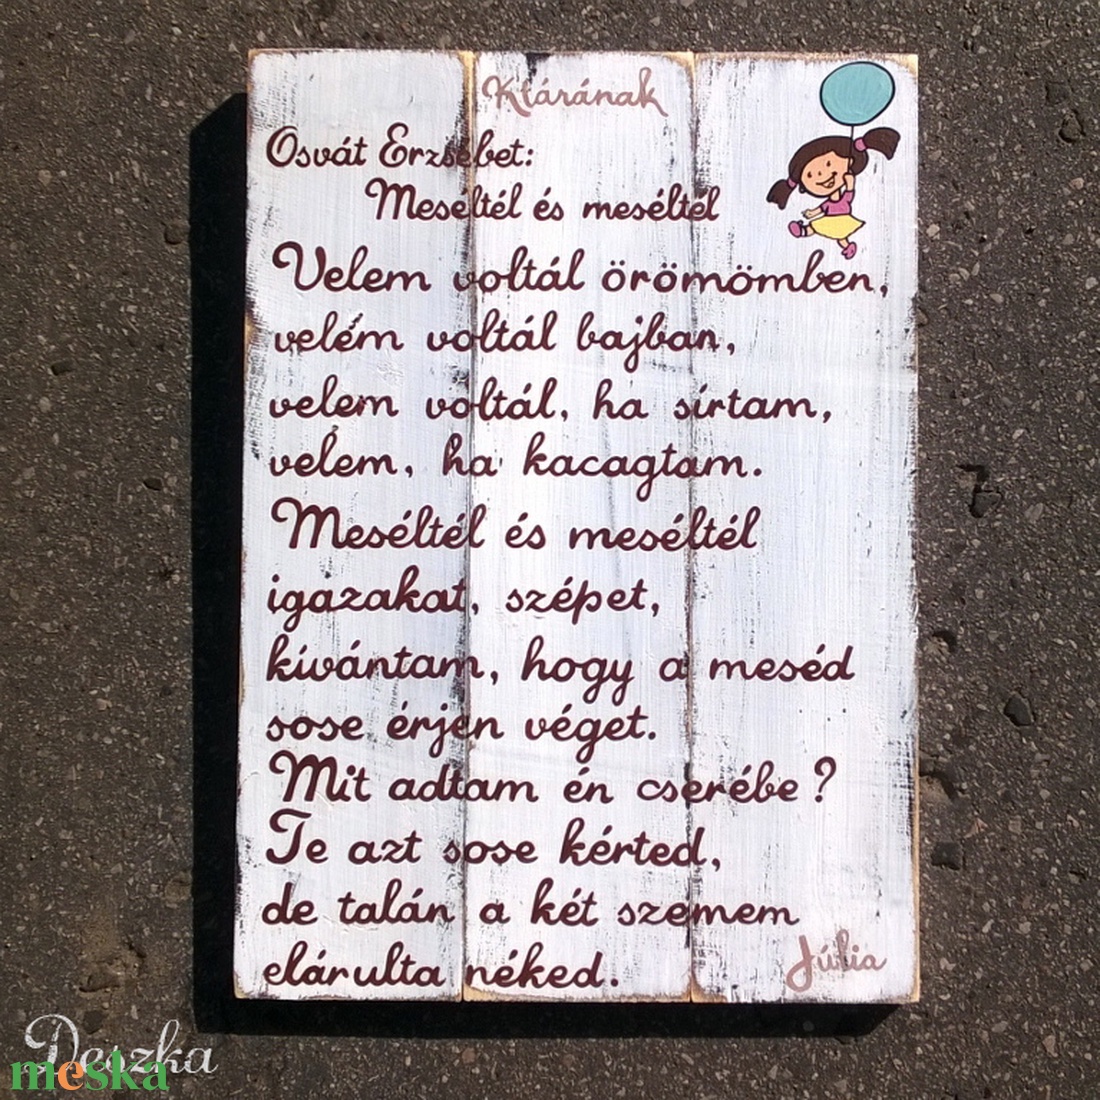 Kiárának
Osvát Erzsébet:
Meséltél és meséltél
Velem voltál örömömben,
velem voltál bajban,
velem voltál, ha sírtam,
velem, ha kacagtam.
Meséltél és meséltél
igazakat, szépet,
kívántam, hogy a meséd
sose érjen véget.
Mit adtam én cserébe?
Te azt sose kérted,
de talán a két szemem
elárulta néked.
Júlia
Deszka
meska